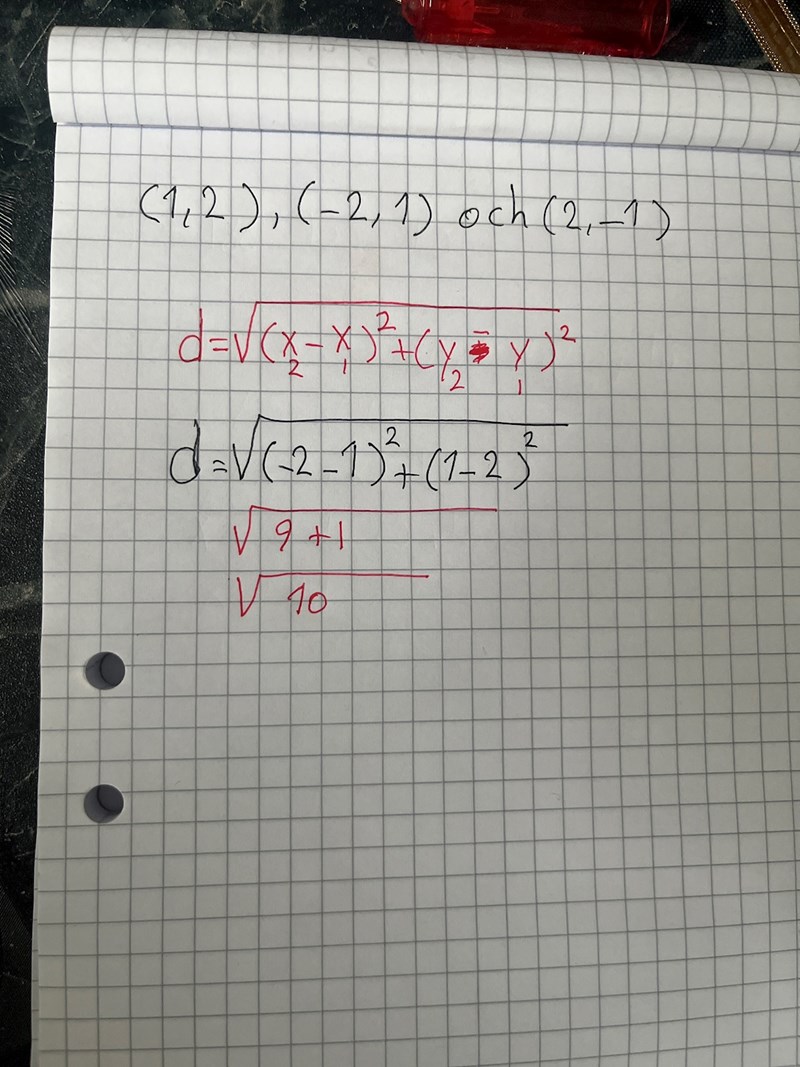 (1,2), (-2,1) och (2,-1)
d=√(x₂-x₁)²+(y₂-y₁)²
d=√(-2-1)²+(1-2)²
√9+1
√10